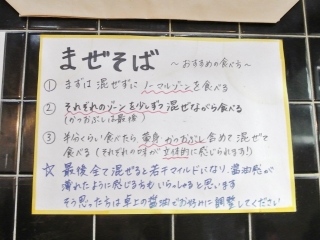 まぜそば ～おすすめの食べ方～
① まずは混ぜずにノーマルゾーンを食べる
② それぞれのゾーンを少しずつ混ぜながら食べる
(かつおぶしは最後)
③ 半分くらい食べたら 全部 かつおぶし含めて混ぜて
食べる(それぞれの味が立体的に感じられます!)
☆ 最後全て混ぜると若干マイルドになり、醤油感が
薄れたように感じる方もいらっしゃると思います
そう思った方は卓上の醤油でお好みに調整してください